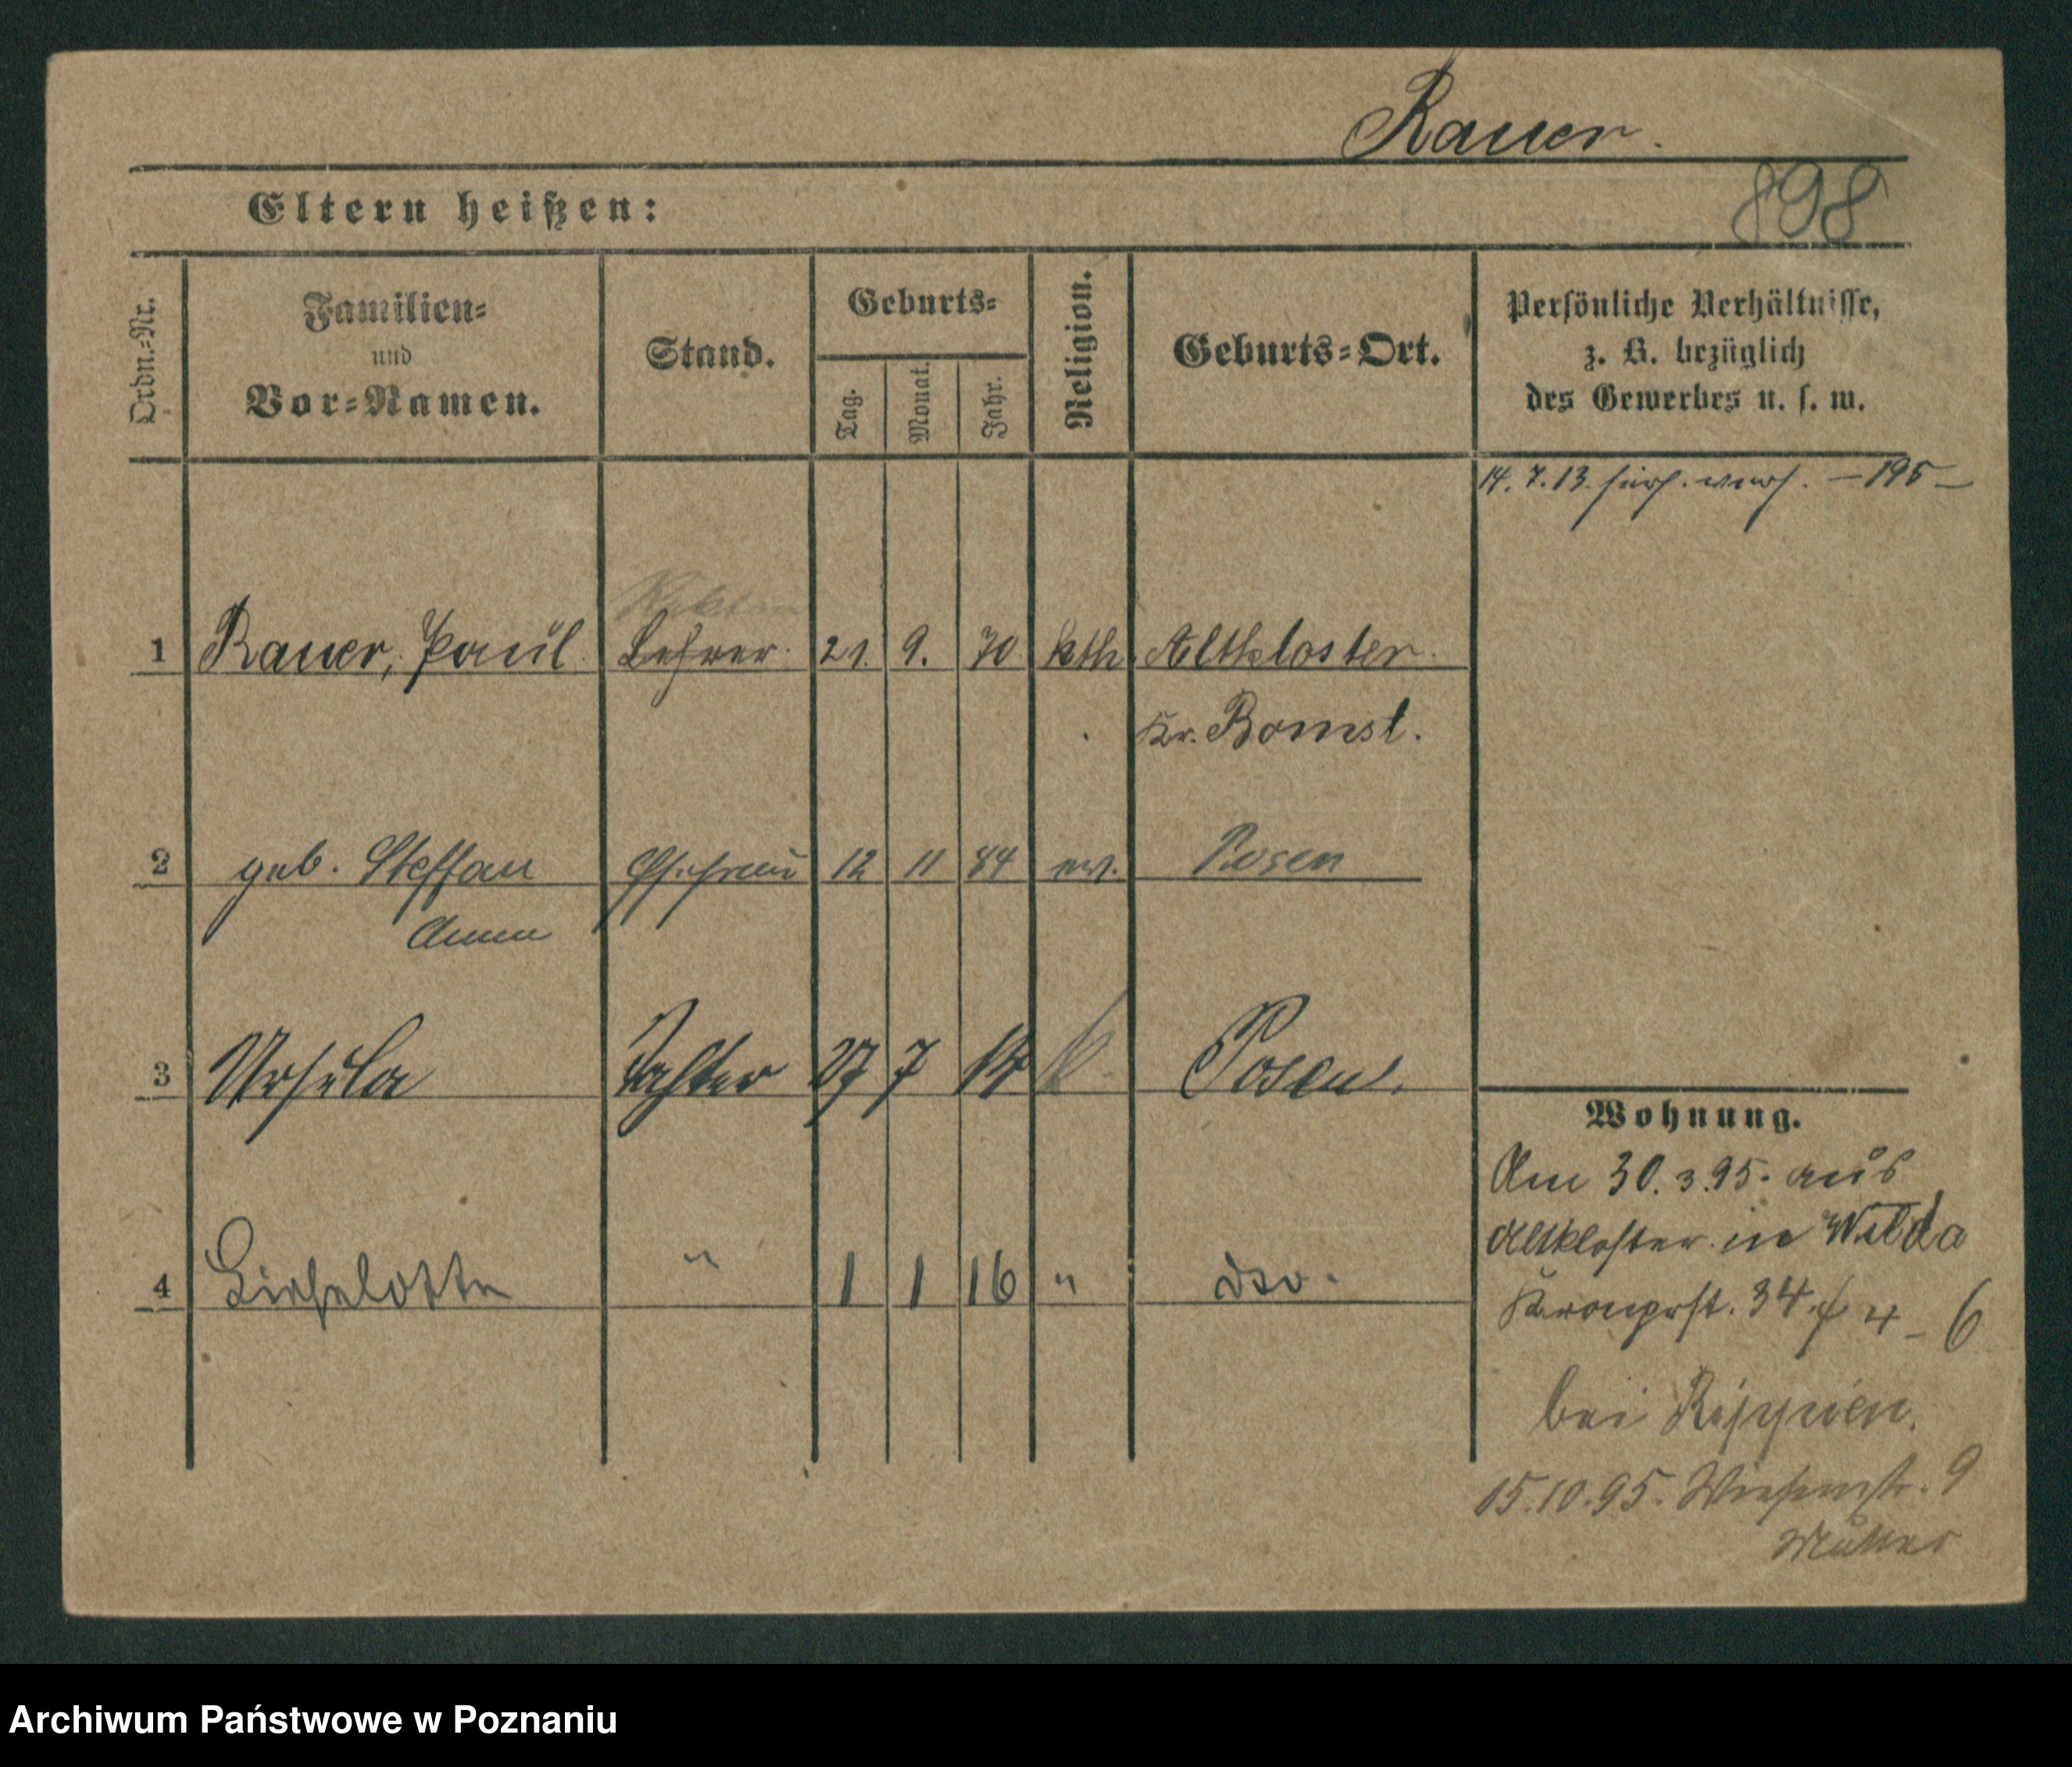 Rauer.
898
Eltern heißen:
Ordn.-Nr.
Familien-
und
Vor-Namen.
Stand.
Geburts-
Tag.
Monat.
Jahr.
Religion.
Geburts-Ort.
Persönliche Verhältnisse,
z. B. bezüglich
des Gewerbes u. s. w.
14. 7. 13. — 195 —
Rektor
1 Rauer, Paul. Lehrer. 21. 9. 70 kth. Altkloster.
Kr. Bomst.
2 geb. Steffan Ehefrau 12 11 84 ev. Posen
Anna
3 Ursula Tochter 27 7 14 k. Posen.
4 Lieselotte " 1 1 16 " dso.
Wohnung.
Am 30. 3. 95. aus
Altkloster in Wilda
Kronprst. 34. 4 - 6
bei
15. 10. 95. Wiesenstr. 9
Archiwum Państwowe w Poznaniu